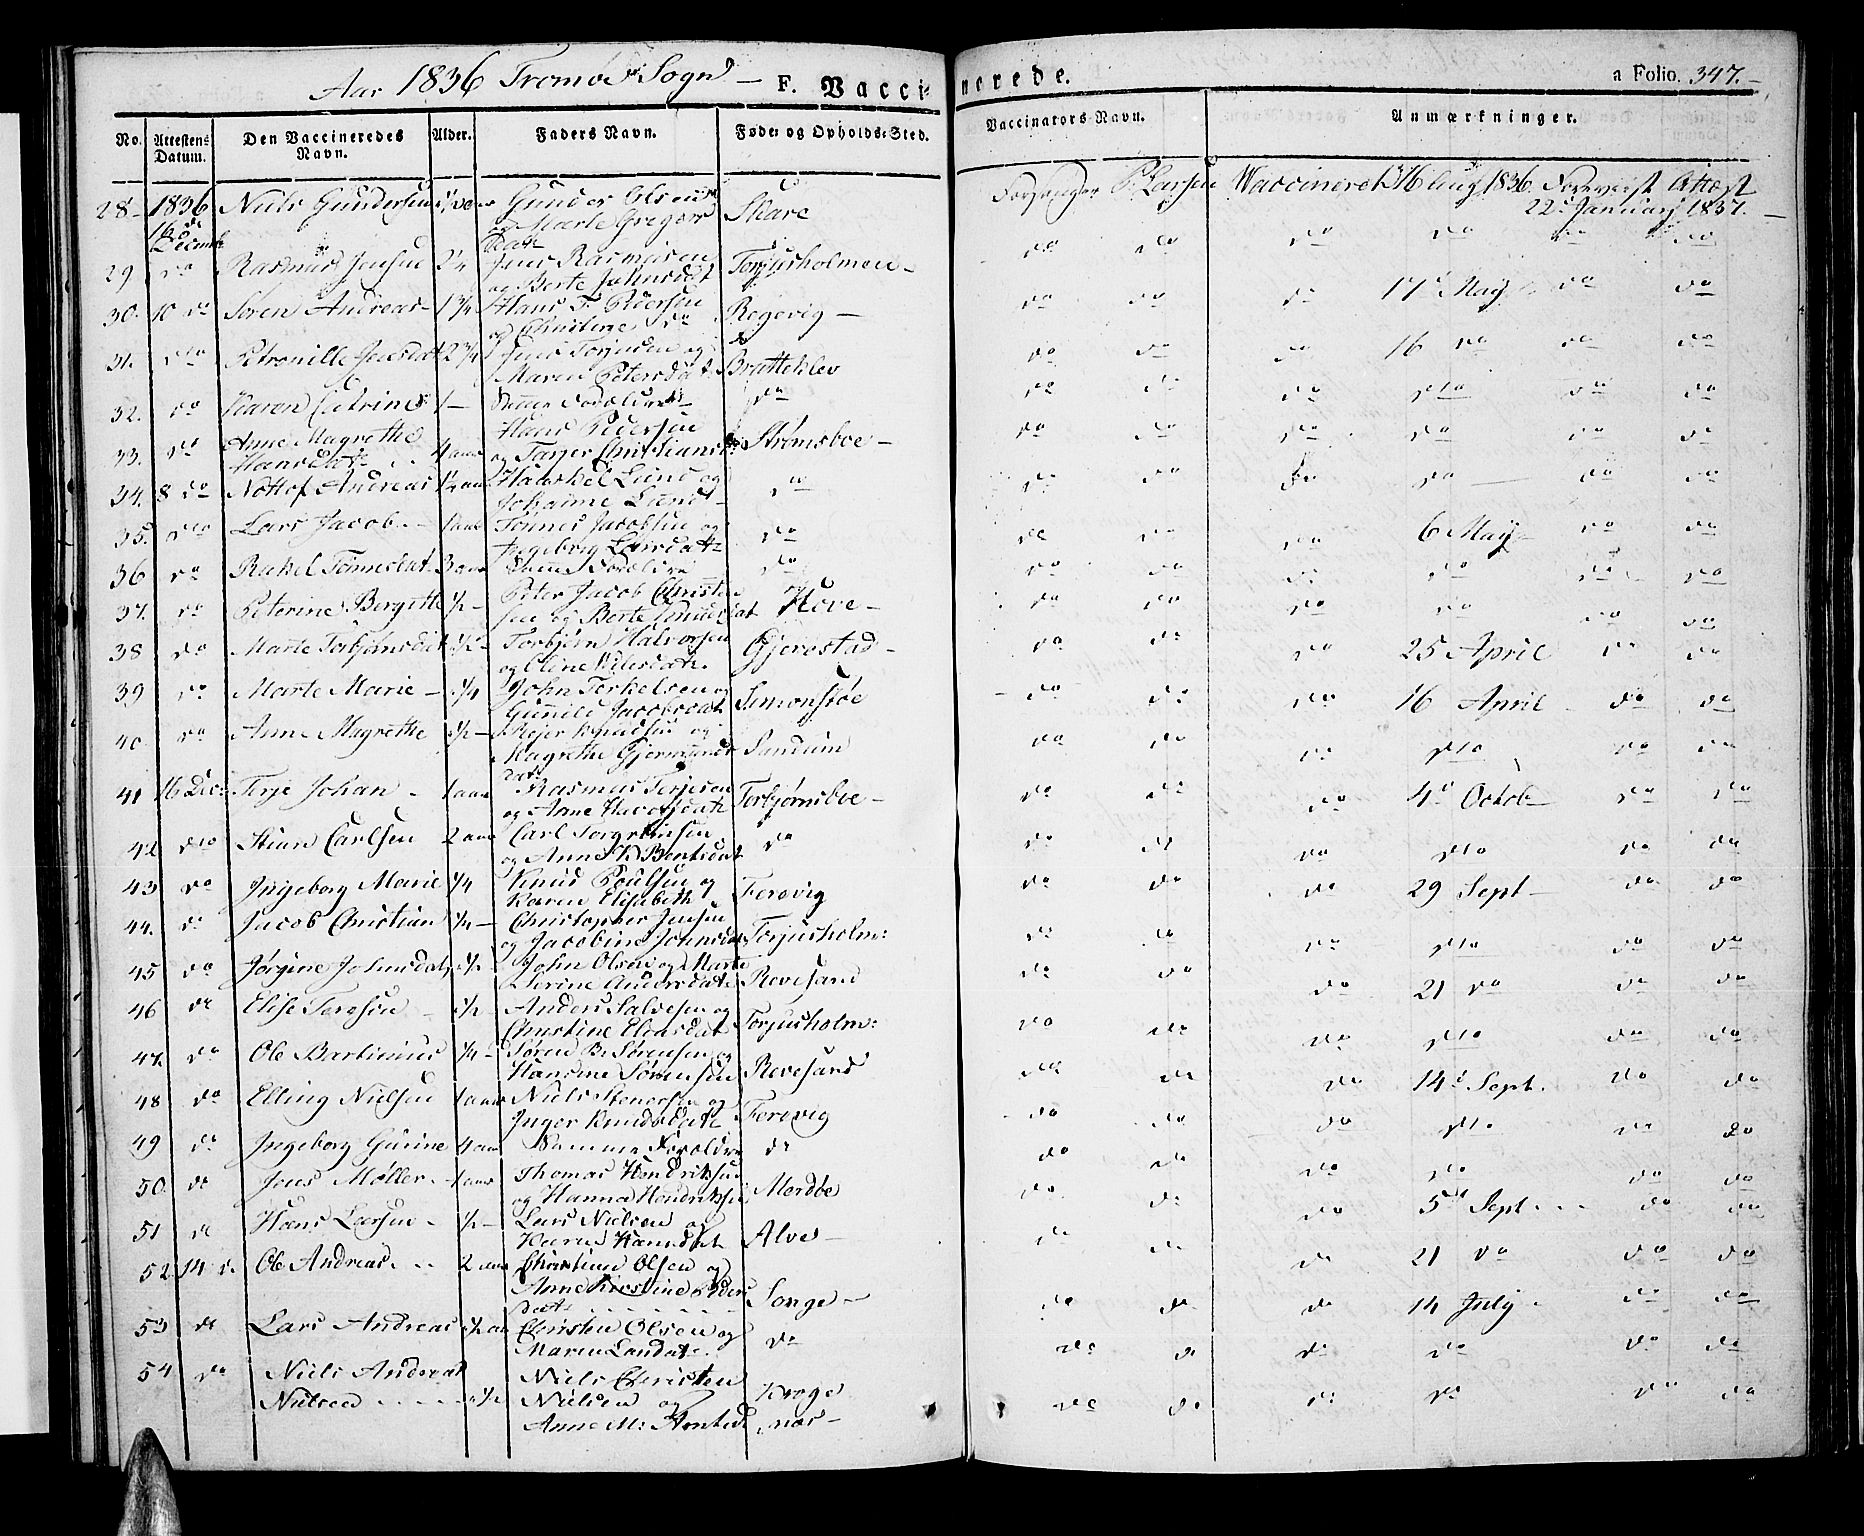 Aar 1836 Tromøe Sogn — F. Vaccinerede. a Folio. 347.
No. Attestens Datum. Den Vaccineredes Navn. Alder. Faders Navn. Føde: og Opholds: Sted. Vaccinators Navn. Anmærkninger.
28 1836 Niels Gundersen Gunder Olsen Skare P. Larsen Vaccineret 1836 Attest
16de Decemb og Marte Gregers 22 Januarj 1837.
datt
29 do Rasmus Jensen 2 1/4 Jens Rasmusen Torjusholmen do do do do do do
og Berte Jahnsdat
30. 10 do Søren Andreas 1 3/4 Hans F. Pedersen Regevig do do do 17 May do do
og Christine do
31. do Petronille Jensdat 2 3/4 Jens Torjusen og Bratteklev do do do 16 do do do
Maren Petersdat
32. do Karen Catrine 1 Samme Forældre do do do do dto do do
33. do Anne Magrethe Hans Pedersen
Hansdat 4 aar og Torjer Christiansd Strømsboe do do do do do do
34. 8 do Nottof Andreas 1 1/2 aar Lund og do do do do do do do
Johanne Lund
35. do Lars Jacob 1 aar Tønnes Jacobsen og do do do do 6 May do do
Ingeborg Larsdatt
36 do Rakel Tønnesdat 3 aar Samme Forældre do do do do do do do
37. do Peterine Bergitte 1/2 Peter Jacob Christen Hove do do do do do do
sen og Berte Knudsdat
38 do Marte Torbjørnsdat 1/2 Torbjørn Halvorsen Gjerrestad do do do 25 April do do
og Eline Nilsdatt.
39 do Marte Marie 1/4 John Terkelsen og Simonstøe do do do 16 April do do
Gunnild Jacobsdat
40. do Anne Magrethe 1/2 Rejer Knudsen og Sandum do do do dto do do
Magrethe Gjermunds
dat
41 16 Dec: Terje Johan 1 aar Rasmus Terjesen Torbjørnsboe do do do 4d Octob do do
og Anne
42 dto Stian Carlsen 2 aar Carl Torgrimsen do do do do dto do do
og Anne K. Bentsdat
43 do Ingeborg Marie 1/4 Knud Poulsen og Ferevig do do do 29 Sept do do
Karen Elisabeth
44. do Jacob Christian 1/4 Christopher Jensen
og Jacobine Johnsda Torjusholm: do do do dto do do
45 do Jørgine Johnsdat 1/2 John Olsen og Marte Revesand do do do 21 do do do
Serine Andersdatt
46 do Elise Terese 1/2 Anders Salvesen og Torjusholm: do do do dto do do
Christine Eliasdat
47. do Ole Bartinius 1/4 Søren B. Sørensen og Revesand do do do 14d Sept. do do
Hansine Sørensen
48 do Elling Nielsen 1 aar Niels Stenersen og Ferevig do do do dto do do
Inger Knudsdatt
49 do Ingeborg Gurine 4 aar Samme Forældre do do do do do do do
50. do Jens Møller 1 aar Thomas Hendriksen Merdøe do do do 5d Sept. do do
og Hanna Hendriksen
51 do Hans Larsen 1/2 Lars Nielsen og Alve do do do 21 do do do
Karen Hansdat
52. 14 d. Ole Andreas 2 aar Christian Olsen og
Anne Kirstine Peders Songe do do do 14 July do do
dat
53 do Lars Andreas 1/2 aar Christen Olsen og do do do do do do do
Maren Larsdat.
54 do Niels Andreas Niels Christen
Nielsen 1/2 Nielsen og Kroge do do do do do do
Anne M: næs